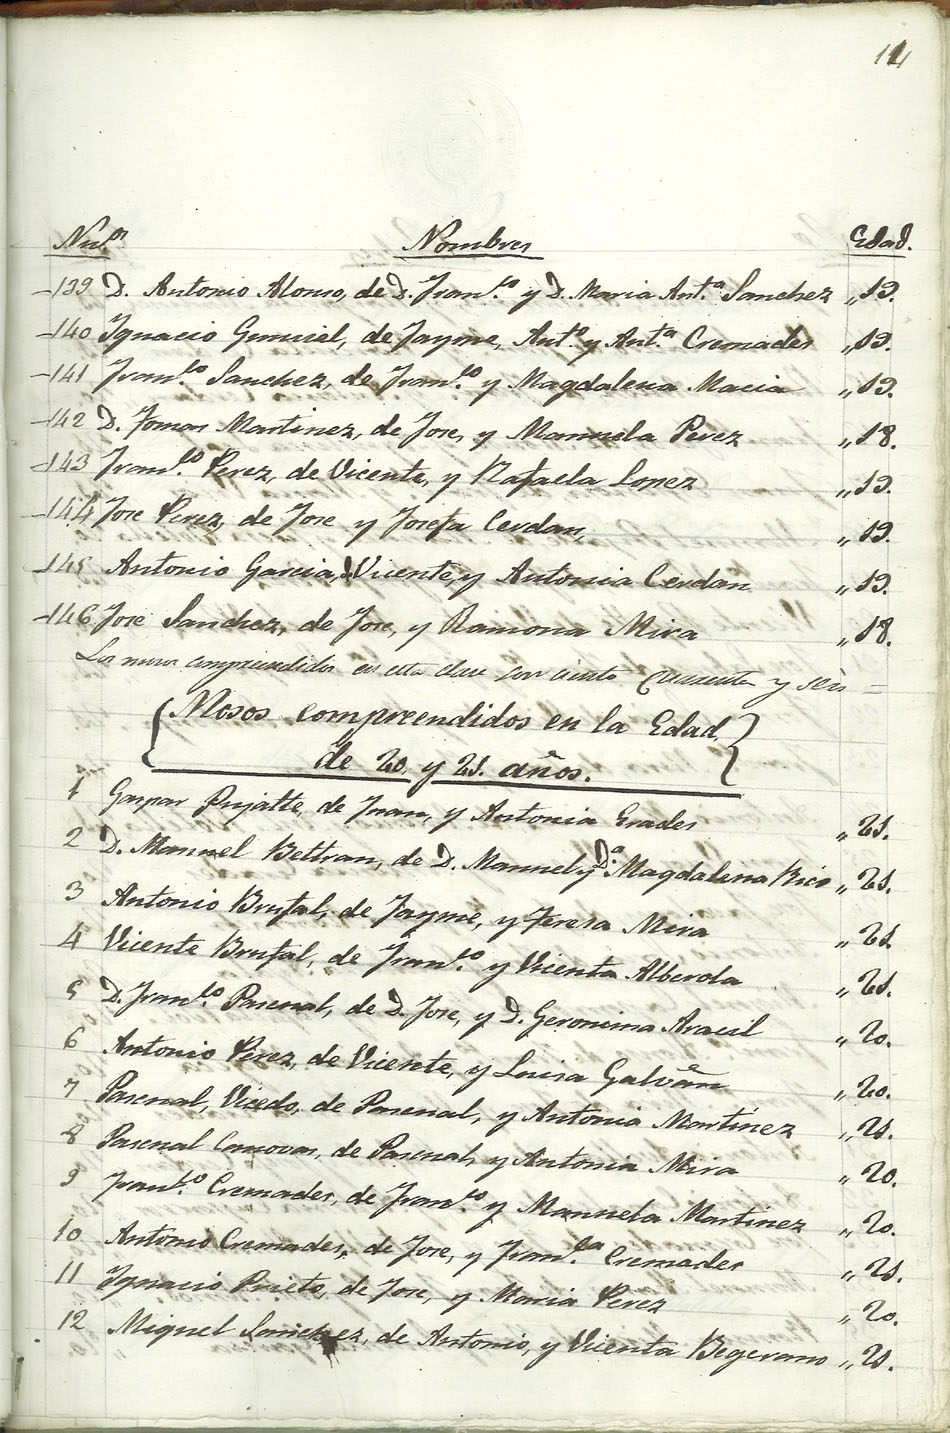 14
Num.os Nombres Edad.
139 D. Antonio Alonso, de D. Fran.co y D. Maria Ant.a Sanchez „ 19.
140 Ygnacio Gumiel, de Jayme, Ant.o y Ant.a Cremades „ 19.
141 Fran.co Sanchez, de Fran.co y Magdalena Macia „ 19.
142 D. Tomas Martinez, de Jose, y Manuela Perez „ 18.
143 Fran.co Perez, de Vicente, y Rafaela Lopez „ 19.
144 Jose Perez, de Jose y Josefa Cerdan, „ 19.
145 Antonio Garcia, d Vicente, y Antonia Cerdan „ 19.
146 Jose Sanchez, de Jose, y Ramona Mira „ 18.
Los mosos comprendidos en esta clase son ciento cuarenta y seis =
Mosos compreendidos en la Edad
de 20. y 21. años.
1 Gaspar Pujalte, de Juan, y Antonia Grades „ 21.
2 D. Manuel Beltran, de D. Manuel y D.a Magdalena Rico „ 21.
3 Antonio Brufal, de Jayme, y Teresa Mira „ 21.
4 Vicente Brufal, de Fran.co y Vicenta Alberola „ 21.
5 D. Fran.co Pascual, de D. Jose, y D. Geronima Aracil „ 20.
6 Antonio Perez, de Vicente, y Luisa Galvañ „ 20.
7 Pascual, Vicedo, de Pascual, y Antonia Martinez „ 21.
8 Pascual Canovas, de Pascual, y Antonia Mira „ 20.
9 Fran.co Cremades, de Fran.co y Manuela Martinez „ 20.
10 Antonio Cremades, de Jose, y Fran.ca Cremades „ 21.
11 Ygnacio Prieto, de Jose, y Maria Perez „ 20.
12 Miguel Sanchez, de Antonio, y Vicenta Begerano „ 21.